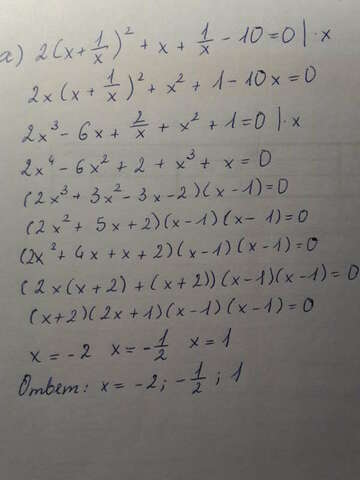 а) 2(x+1/x)² + x + 1/x - 10 = 0 | · x
2x(x+1/x)² + x² + 1 - 10x = 0
2x³ - 6x + 2/x + x² + 1 = 0 | · x
2x⁴ - 6x² + 2 + x³ + x = 0
(2x³ + 3x² - 3x - 2)(x - 1) = 0
(2x² + 5x + 2)(x - 1)(x - 1) = 0
(2x² + 4x + x + 2)(x - 1)(x - 1) = 0
(2x(x + 2) + (x + 2))(x - 1)(x - 1) = 0
(x + 2)(2x + 1)(x - 1)(x - 1) = 0
x = -2 x = -1/2 x = 1
Ответ: x = -2; -1/2; 1